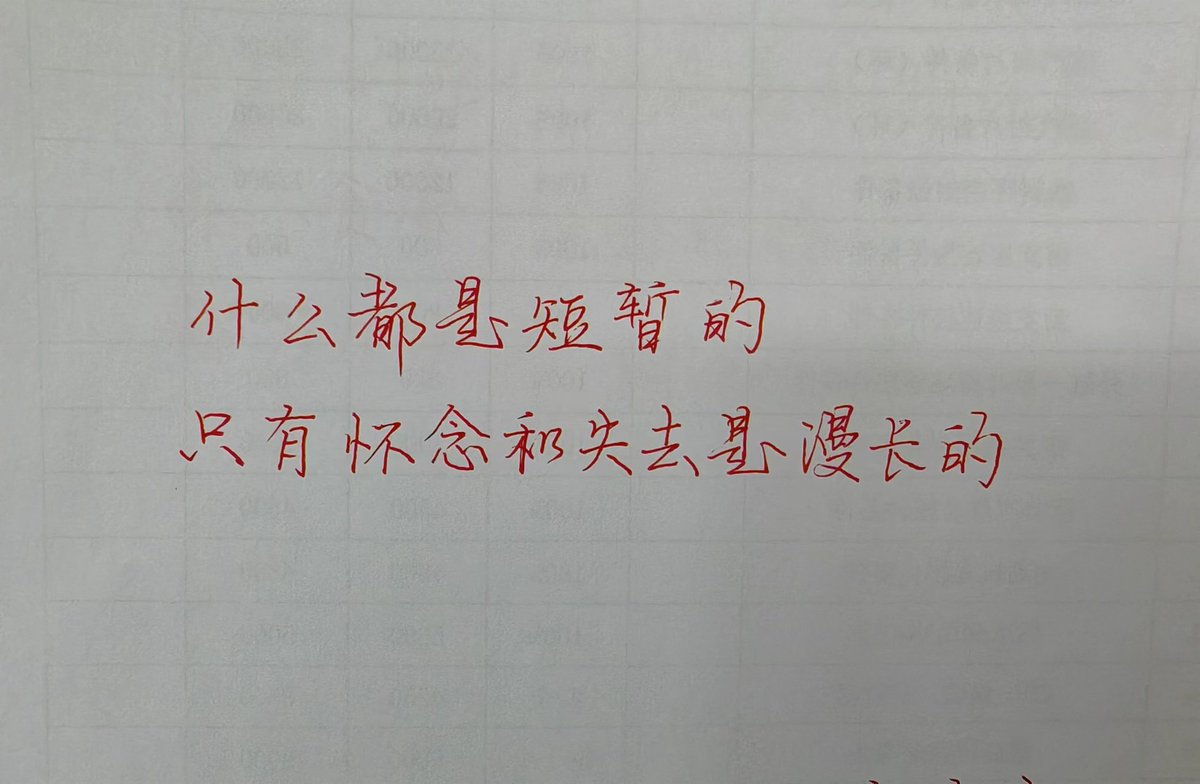 什么都是短暂的
只有怀念和失去是漫长的